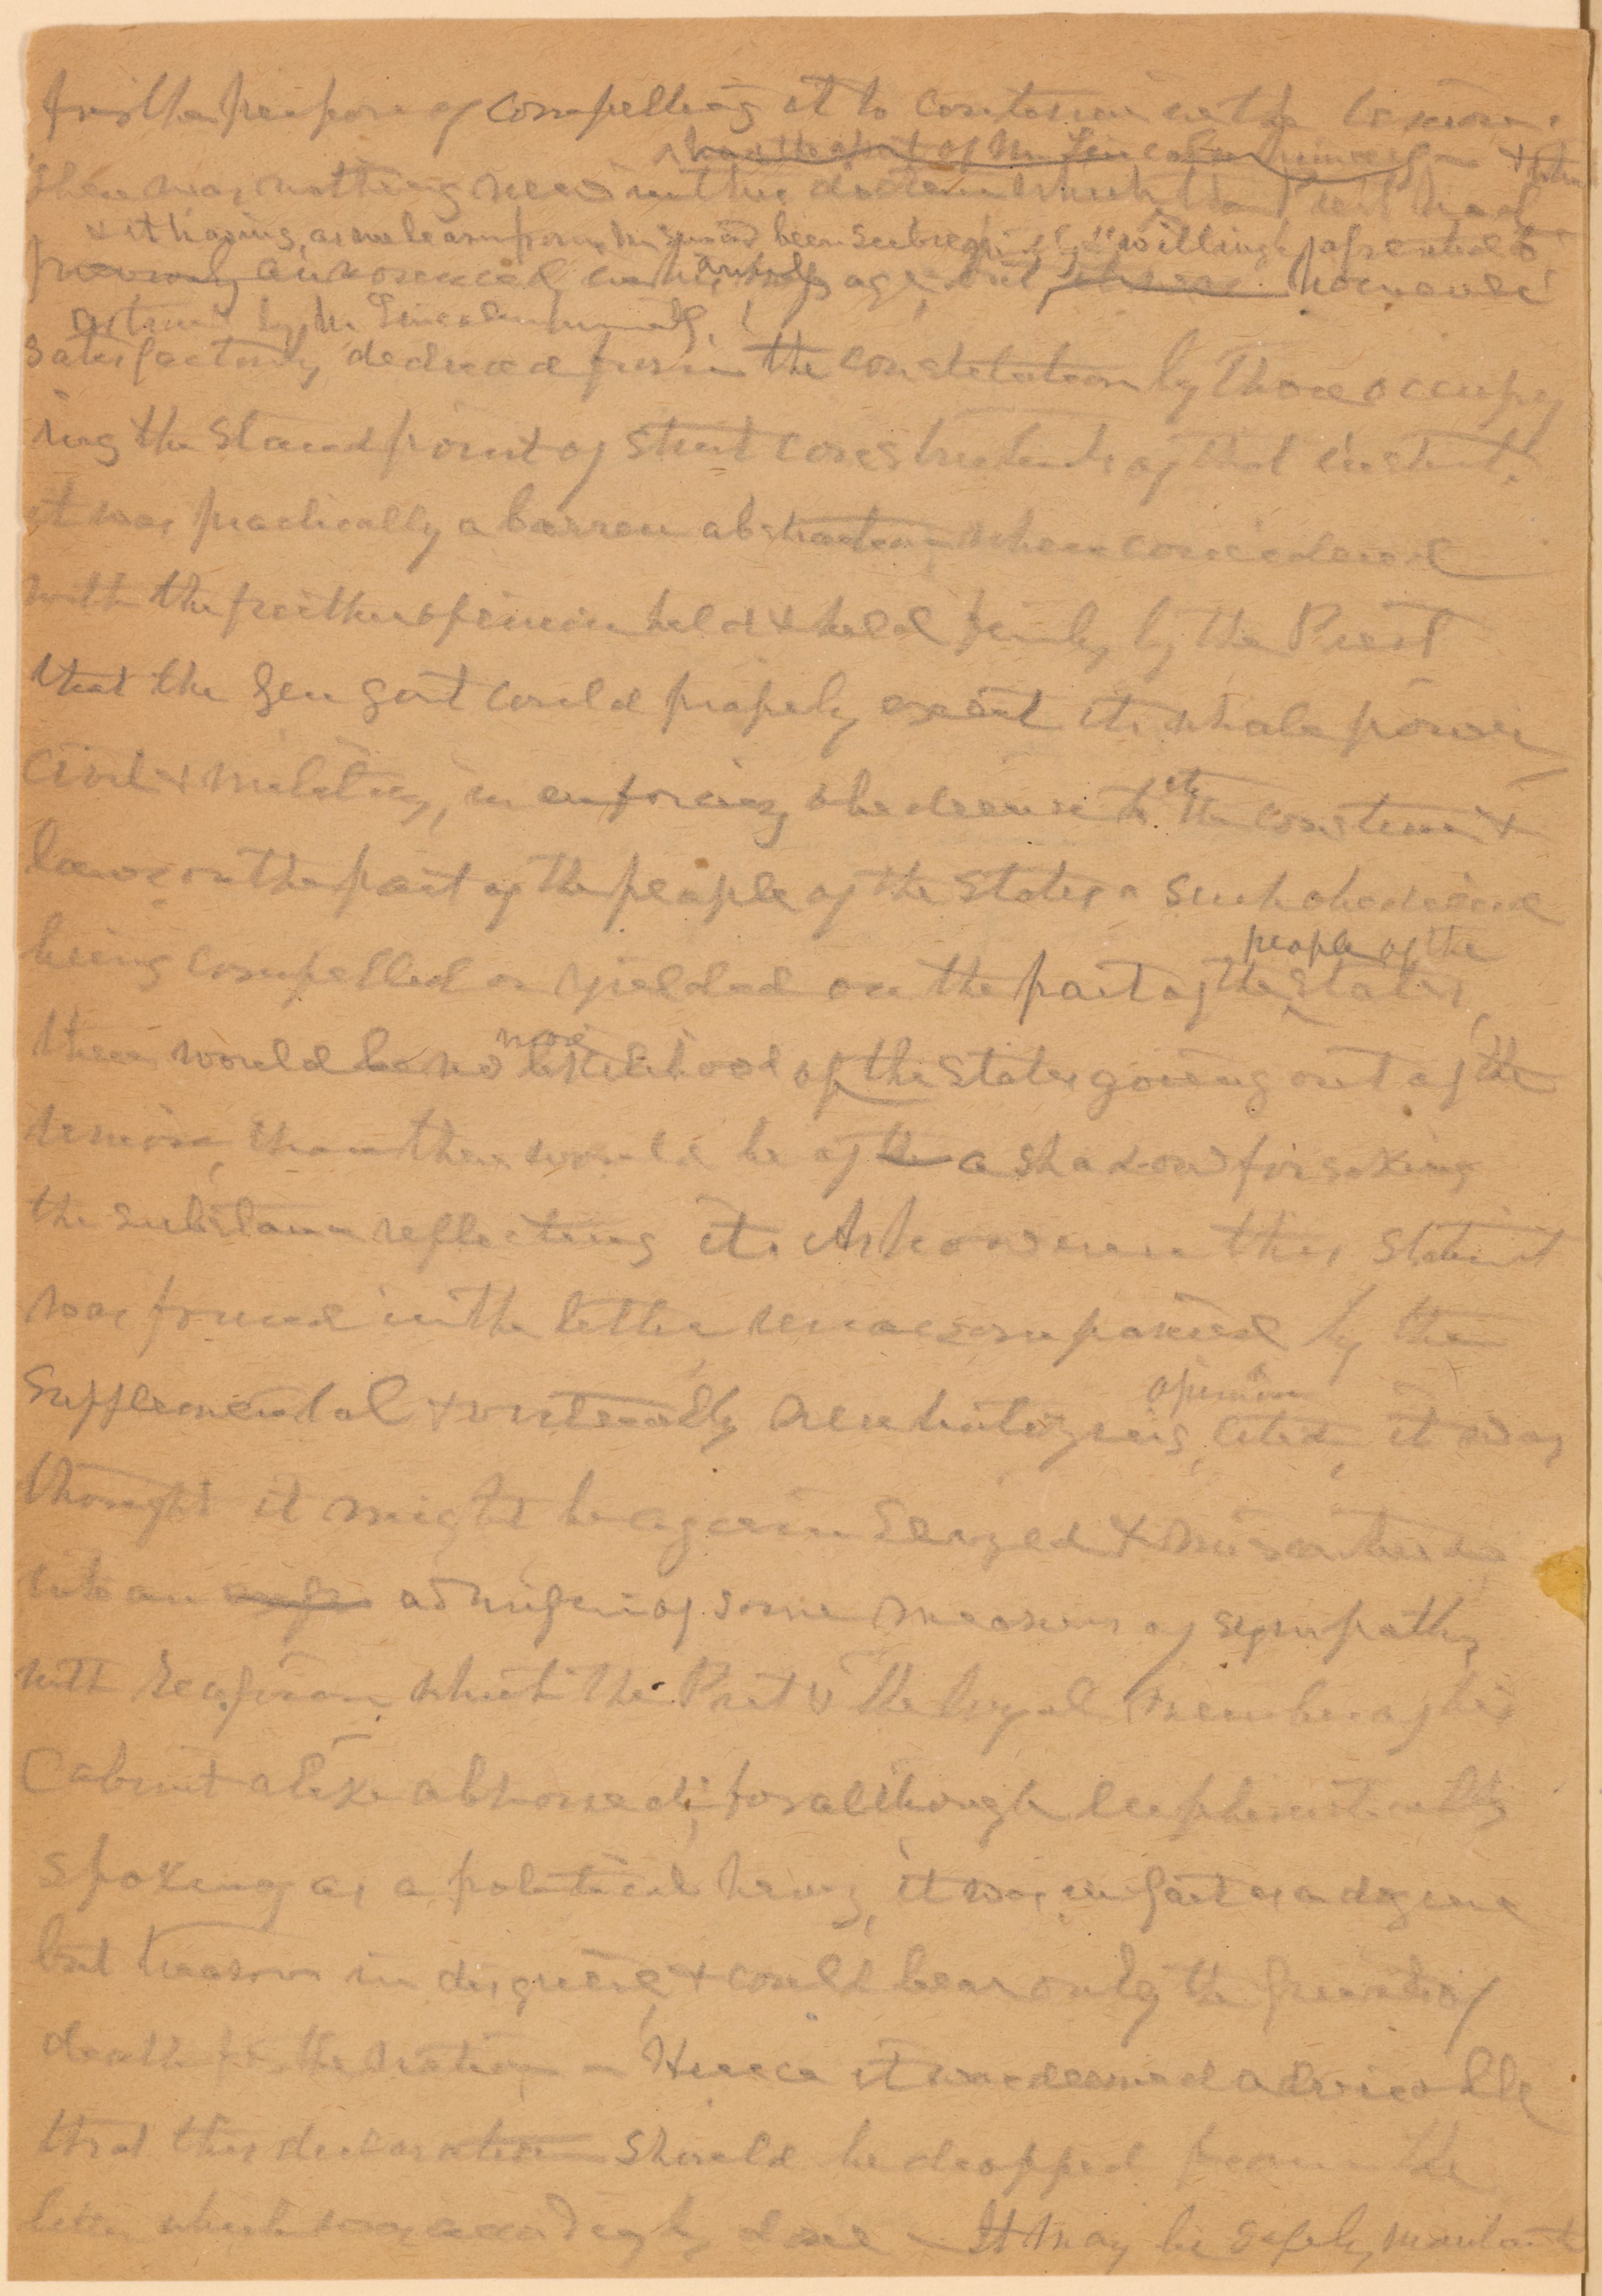 for the purpose of compelling it to continue in the Union.
had the assent of Mr Lincoln himself - & this
There was nothing new in this doctrine which the Prest had
& it having, as we learn from Mr been subsequently "willingly assented to
previously announced, in his annual message, but, however
by Mr Lincoln himself,
satisfactorily deduced from the constitution by those occupy
ing the stand point of strict construction of that instrut.
it was practically a barren abstraction, when considered
with the further opinion held & held firmly by the Prest
that the Gen Govt could properly exert its whole power,
civil & military, in enforcing obedience to the constitution &
laws on the part of the people of the States - Such obedience
people of the
being compelled or yielded on the part of the States,
more
there would be no likelihood of the States going out of the
Union, than there would be of the a shadow forsaking
the substance reflecting it. As however this statemt
was found in the letter unaccompanied by the
opinion
supplemental & virtually neutralizing, cited, it was
thought it might be again seized & misconstrued
into an admission of some measure of sympathy
with Secession, which the Prest & the loyal members of his
Cabinet alike abhorred; for although euphemistically
spoken of as a political heresy, it was in fact
but treason in disguise, & could bear only the fruits of
death for the nation - Hence it was deemed advisable
that this declaration should be dropped from the
letter which was accordingly done - It may be safely maintaind